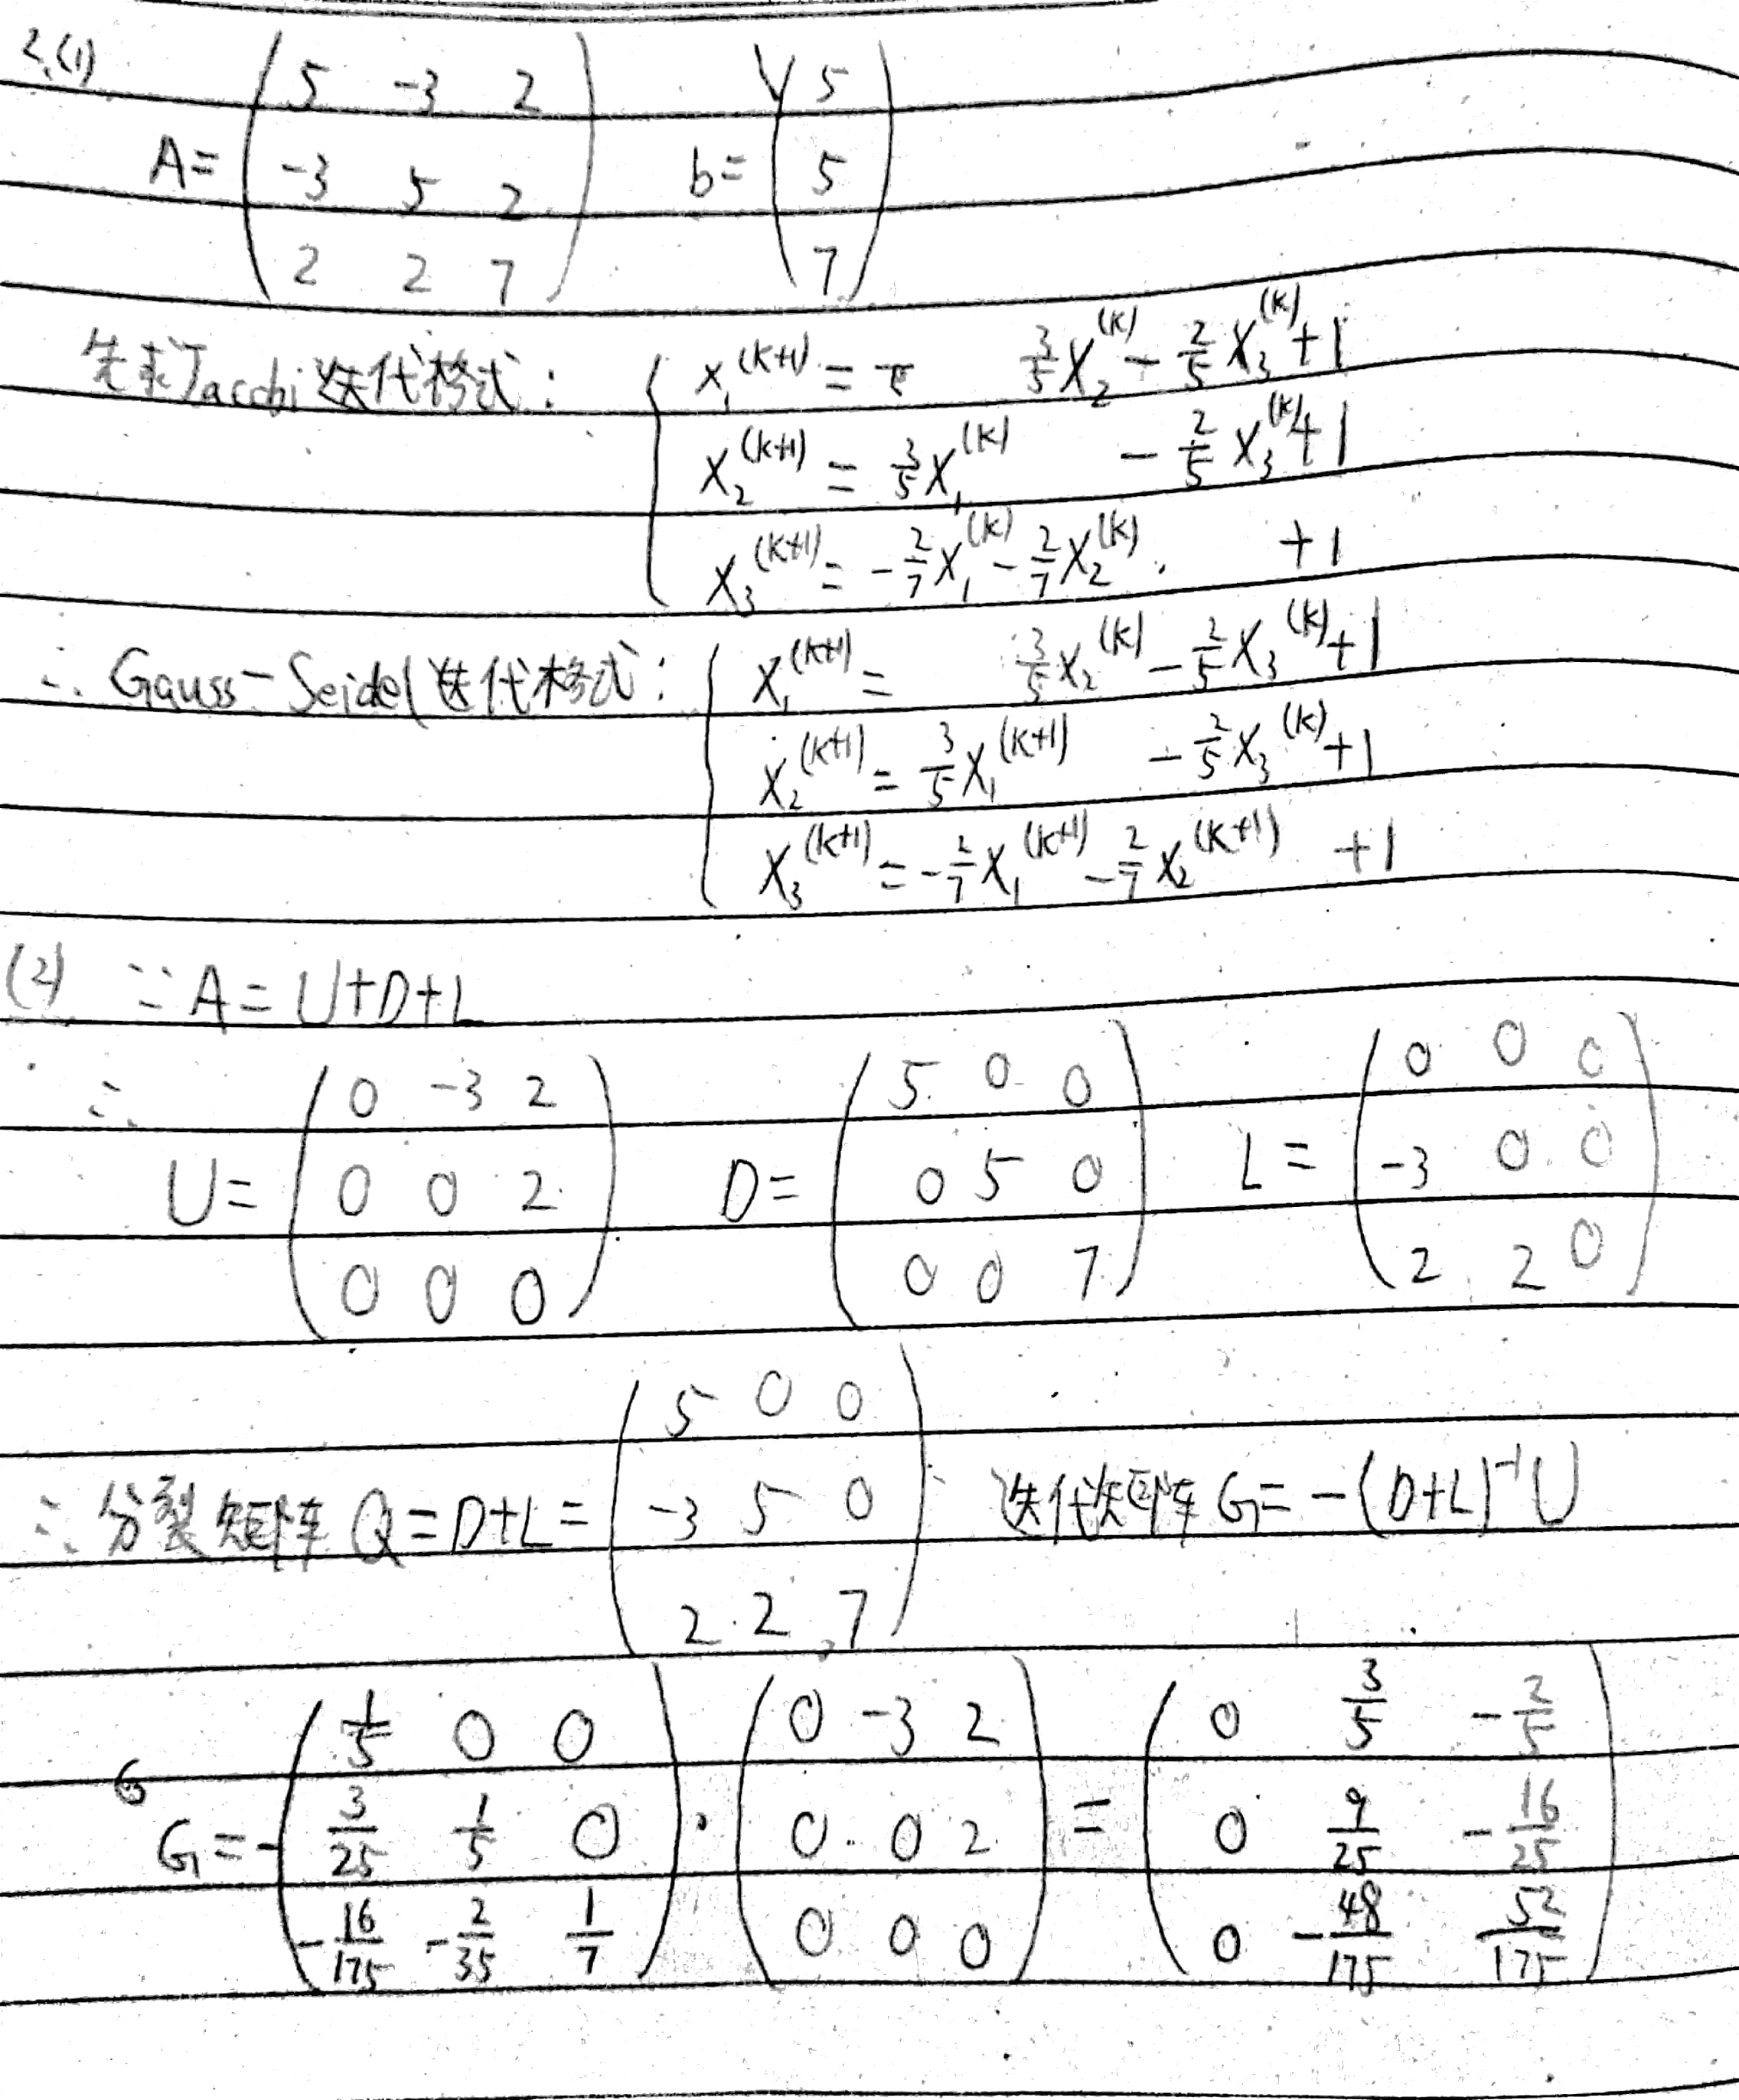 2.(1)
A = \begin{pmatrix} 5 & -3 & 2 \\ -3 & 5 & 2 \\ 2 & 2 & 7 \end{pmatrix} b = \begin{pmatrix} 5 \\ 5 \\ 7 \end{pmatrix}
先求Jacobi迭代格式: \begin{cases} x_1^{(k+1)} = \frac{3}{5}x_2^{(k)} - \frac{2}{5}x_3^{(k)} + 1 \\ x_2^{(k+1)} = \frac{3}{5}x_1^{(k)} - \frac{2}{5}x_3^{(k)} + 1 \\ x_3^{(k+1)} = -\frac{2}{7}x_1^{(k)} - \frac{2}{7}x_2^{(k)} + 1 \end{cases}
∴ Gauss-Seidel迭代格式: \begin{cases} x_1^{(k+1)} = \frac{3}{5}x_2^{(k)} - \frac{2}{5}x_3^{(k)} + 1 \\ x_2^{(k+1)} = \frac{3}{5}x_1^{(k+1)} - \frac{2}{5}x_3^{(k)} + 1 \\ x_3^{(k+1)} = -\frac{2}{7}x_1^{(k+1)} - \frac{2}{7}x_2^{(k+1)} + 1 \end{cases}
(2) ∵ A = U+D+L
∴ U = \begin{pmatrix} 0 & -3 & 2 \\ 0 & 0 & 2 \\ 0 & 0 & 0 \end{pmatrix} D = \begin{pmatrix} 5 & 0 & 0 \\ 0 & 5 & 0 \\ 0 & 0 & 7 \end{pmatrix} L = \begin{pmatrix} 0 & 0 & 0 \\ -3 & 0 & 0 \\ 2 & 2 & 0 \end{pmatrix}
∴ 分裂矩阵 Q = D+L = \begin{pmatrix} 5 & 0 & 0 \\ -3 & 5 & 0 \\ 2 & 2 & 7 \end{pmatrix} 迭代矩阵 G = -(D+L)^{-1}U
G = -\begin{pmatrix} \frac{1}{5} & 0 & 0 \\ \frac{3}{25} & \frac{1}{5} & 0 \\ -\frac{16}{175} & -\frac{2}{35} & \frac{1}{7} \end{pmatrix} · \begin{pmatrix} 0 & -3 & 2 \\ 0 & 0 & 2 \\ 0 & 0 & 0 \end{pmatrix} = \begin{pmatrix} 0 & \frac{3}{5} & -\frac{2}{5} \\ 0 & \frac{9}{25} & -\frac{16}{25} \\ 0 & -\frac{48}{175} & \frac{52}{175} \end{pmatrix}